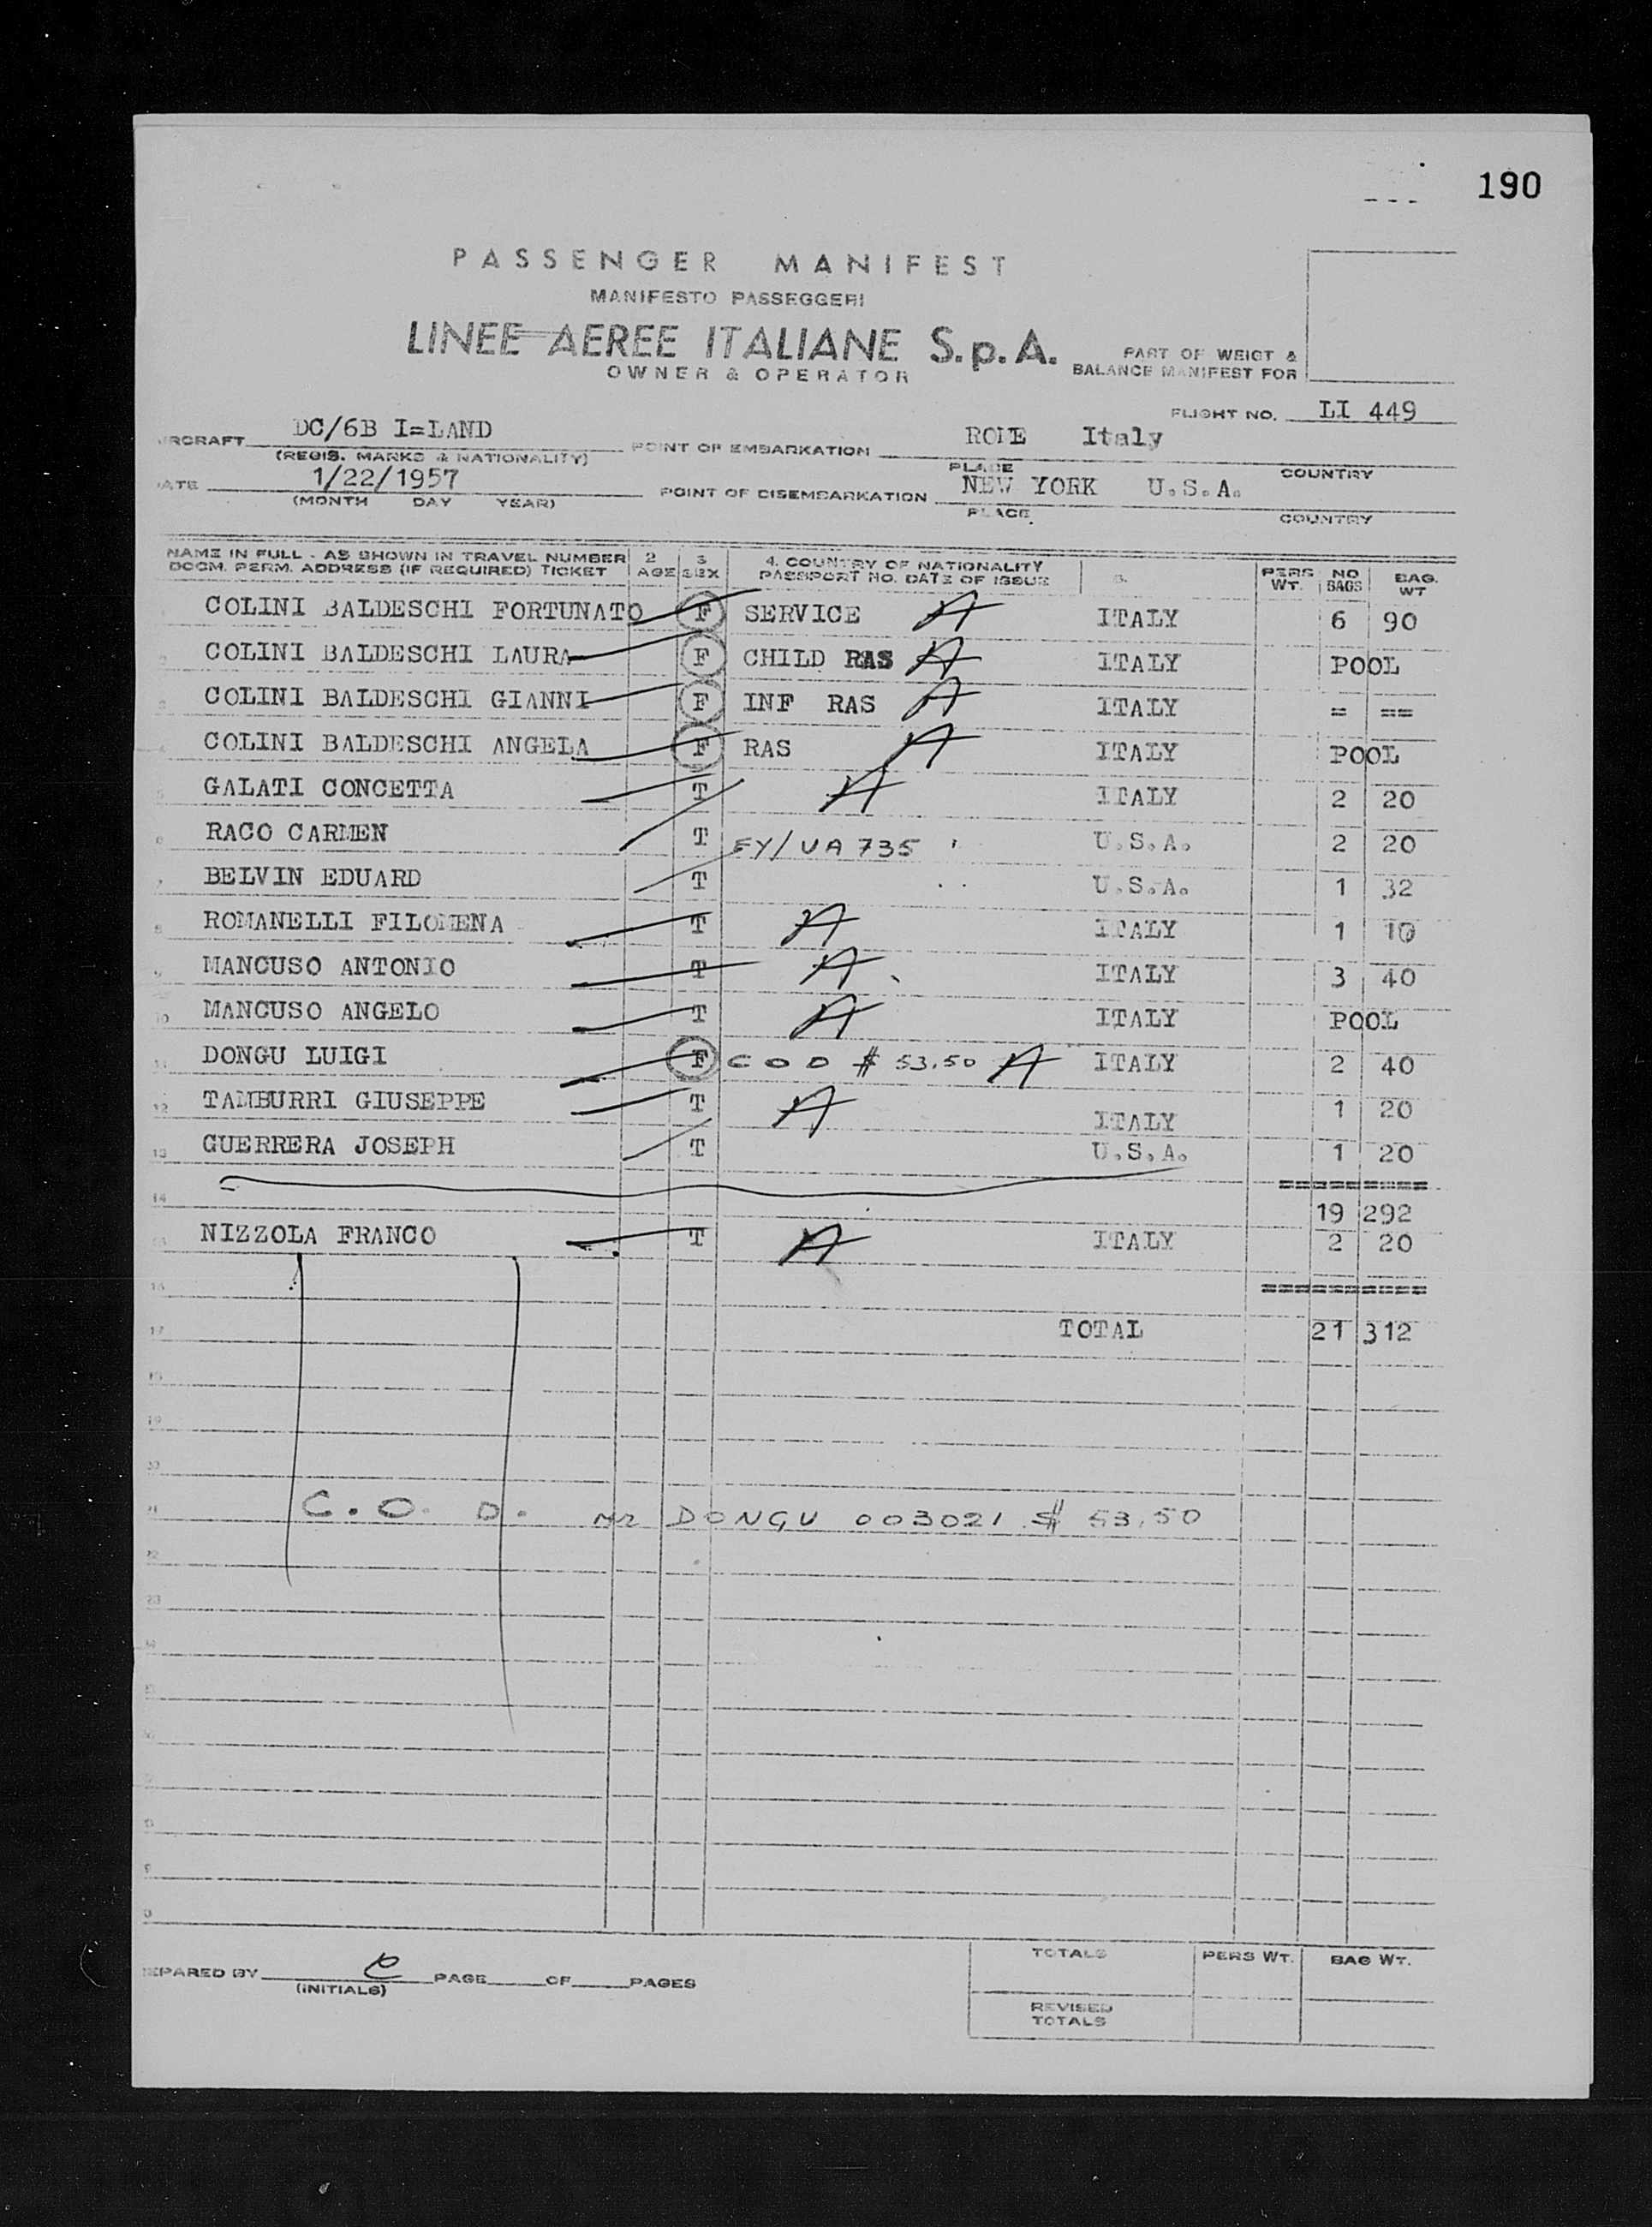 190
PASSENGER MANIFEST
MANIFESTO PASSEGGERI
LINEE AEREE ITALIANE S.p.A.
OWNER & OPERATOR
PART OF WEIGT &
BALANCE MANIFEST FOR
FLIGHT NO. LI 449
IRCRAFT DC/6B I=LAND POINT OF EMBARKATION ROME Italy
(REGIS. MARKS & NATIONALITY) PLACE COUNTRY
ATE 1/22/1957 POINT OF DISEMBARKATION NEW YORK U.S.A.
(MONTH DAY YEAR) PLACE COUNTRY
NAME IN FULL - AS SHOWN IN TRAVEL NUMBER 2 3 4. COUNTRY OF NATIONALITY 5. PERS NO BAG.
DOCM. PERM. ADDRESS (IF REQUIRED) TICKET AGE SEX PASSPORT NO. DATE OF ISSUE WT. BAGS WT
COLINI BALDESCHI FORTUNATO F SERVICE A ITALY 6 90
2 COLINI BALDESCHI LAURA F CHILD RAS A ITALY POOL
3 COLINI BALDESCHI GIANNI F INF RAS A ITALY = ==
4 COLINI BALDESCHI ANGELA F RAS A ITALY POOL
5 GALATI CONCETTA T A ITALY 2 20
6 RACO CARMEN T FY/UA 735 U.S.A. 2 20
7 BELVIN EDUARD T U.S.A. 1 32
8 ROMANELLI FILOMENA T A ITALY 1 10
9 MANCUSO ANTONIO T A ITALY 3 40
10 MANCUSO ANGELO T A ITALY POOL
11 DONGU LUIGI F COD $ 53.50 A ITALY 2 40
12 TAMBURRI GIUSEPPE T A ITALY 1 20
13 GUERRERA JOSEPH T U.S.A. 1 20
=========
14 19 292
15 NIZZOLA FRANCO T A ITALY 2 20
16 ==========
17 TOTAL 21 312
18
19
20
21 C.O.D. Mr DONGU 003021 $ 53.50
22
23
24
25
EPARED BY e PAGE OF PAGES
(INITIALS)
TOTALS PERS WT. BAG WT.
REVISED
TOTALS